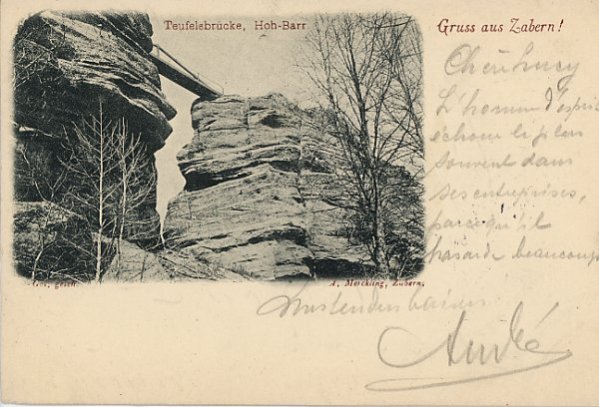 Teufelsbrücke, Hoh-Barr
Gruss aus Zabern!
Chère Lucy
L'homme d'esprit
échoue le plus
souvent dans
ses entreprises,
parce qu'il
hasarde beaucoup
Ges. gesch.
A. Merckling, Zabern.
baisers
André